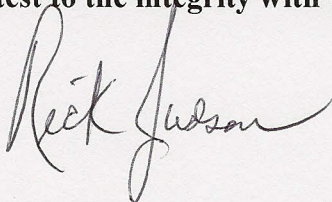 test to the integrity with
Rick Judson